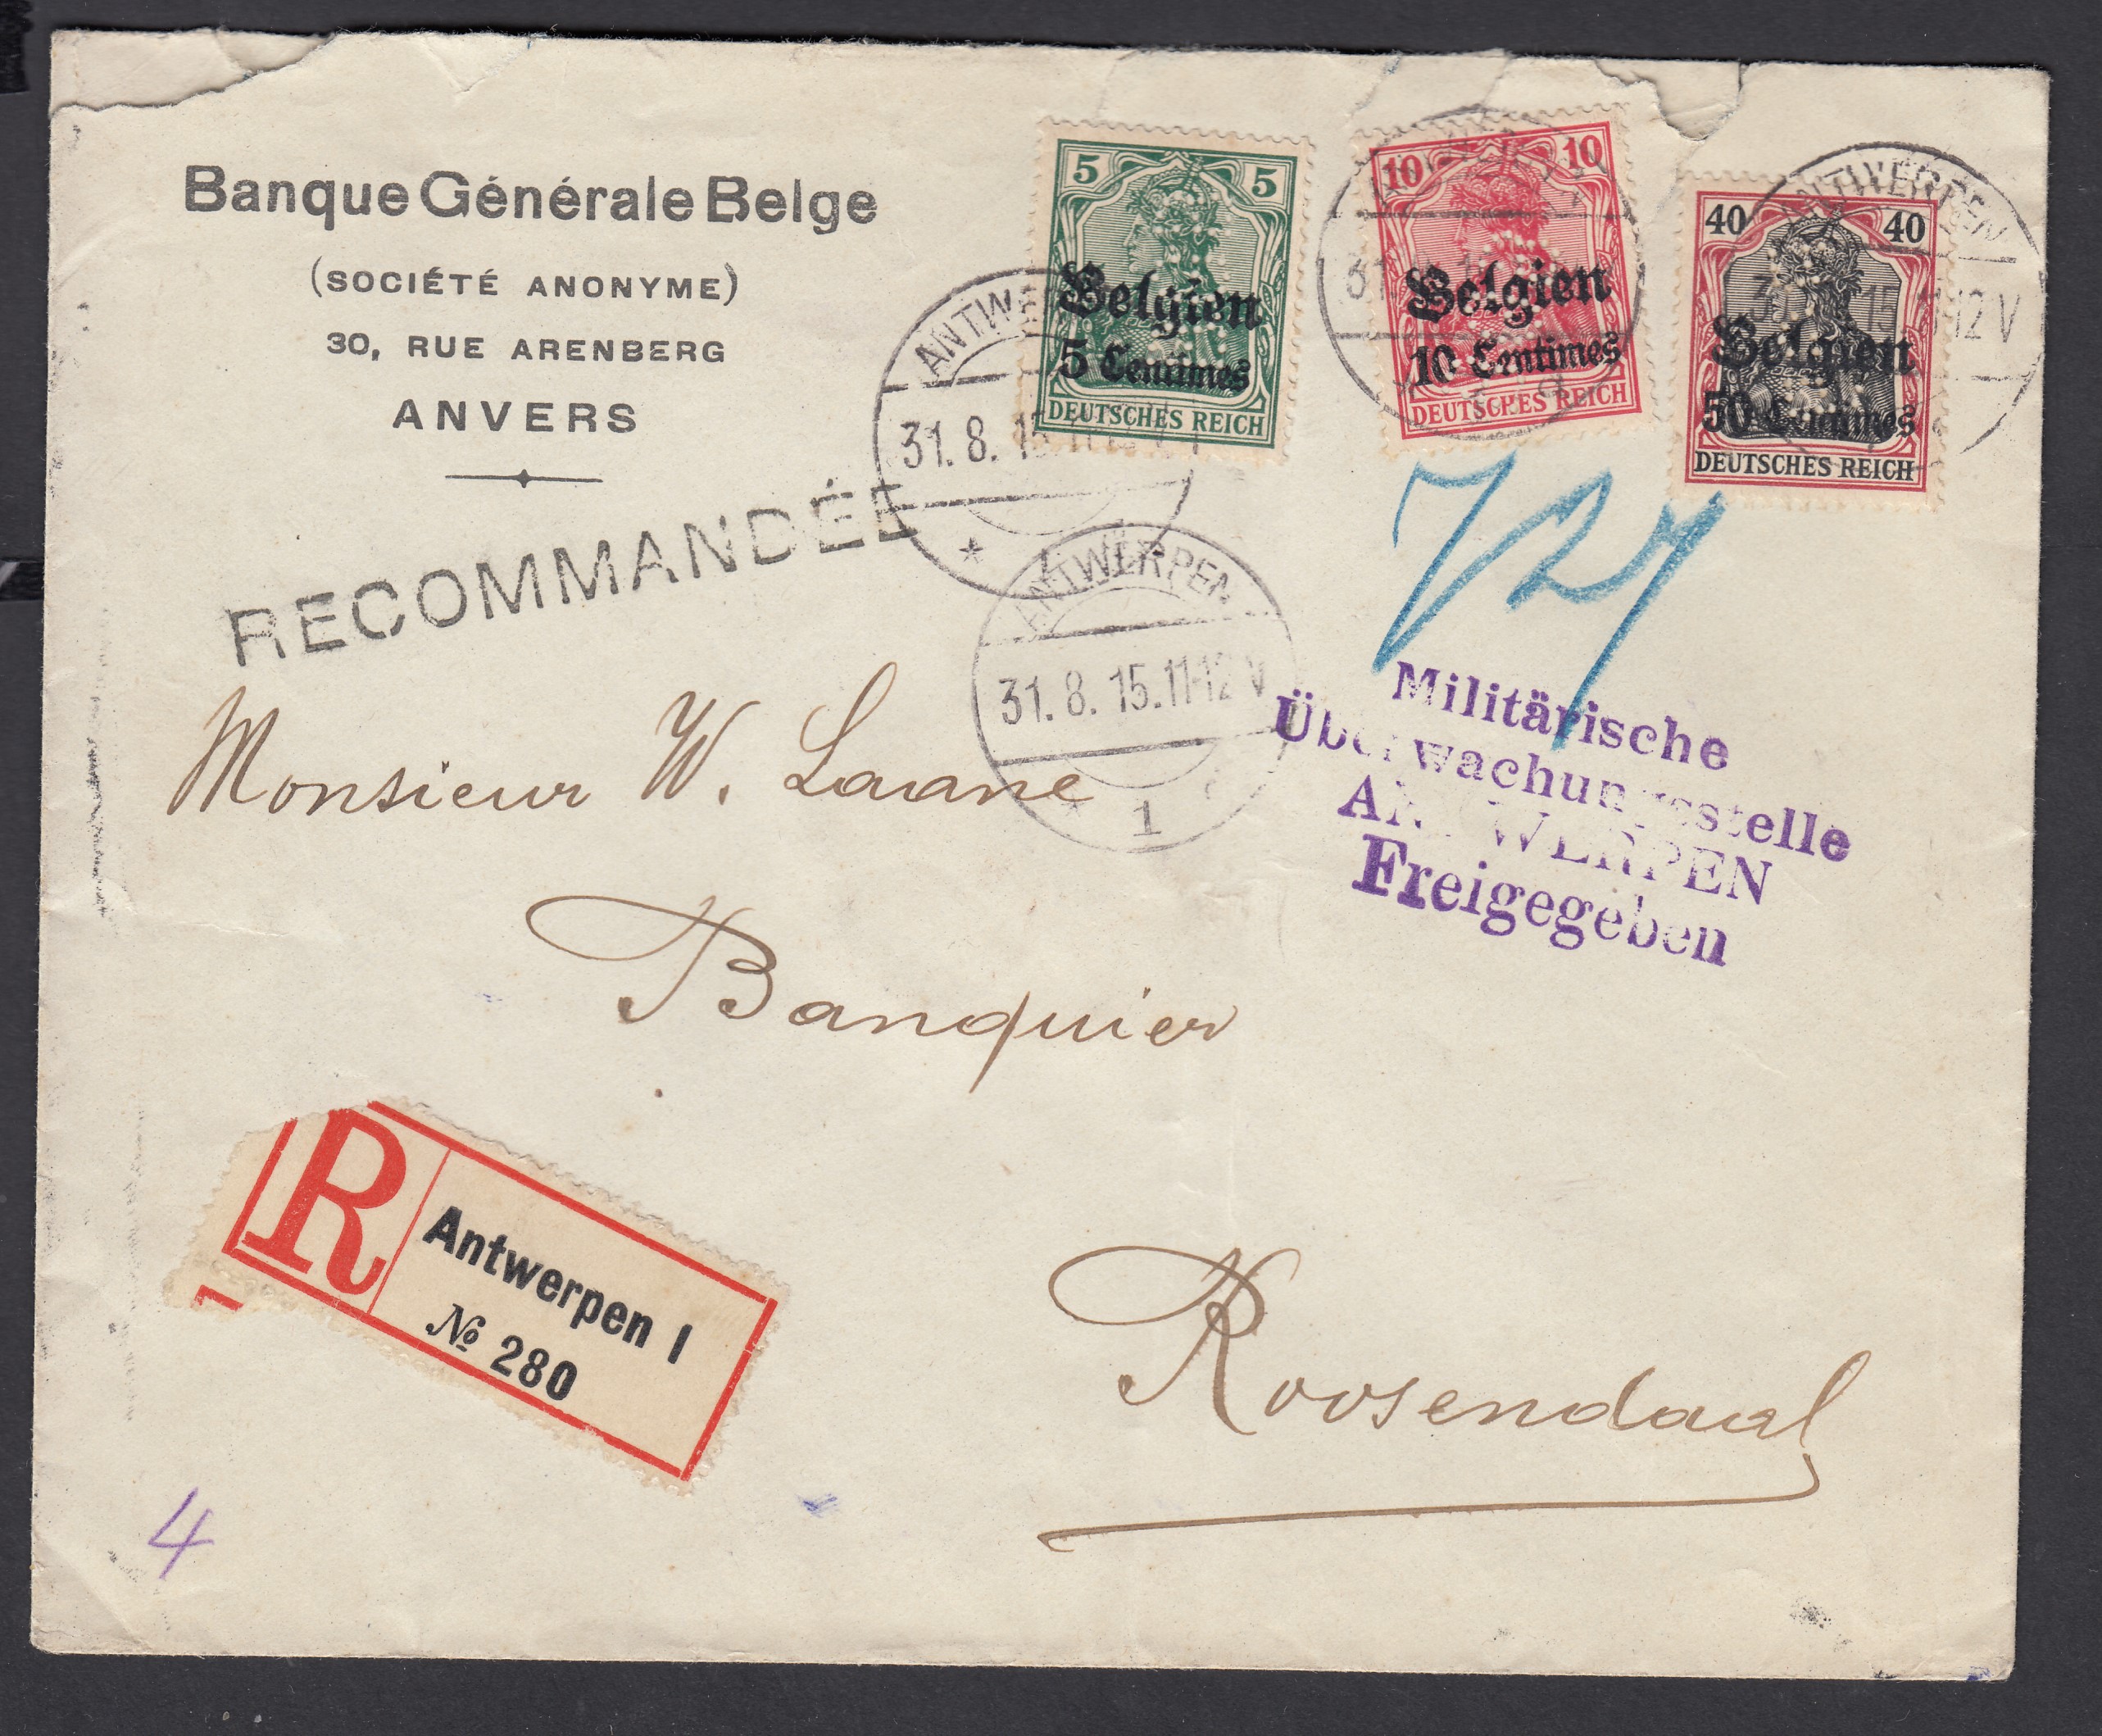 Banque Générale Belge
(SOCIÉTÉ ANONYME)
30, RUE ARENBERG
ANVERS
RECOMMANDÉE
5 5
Belgien
5 Centimes
DEUTSCHES REICH
10 10
Belgien
10 Centimes
DEUTSCHES REICH
40 40
Belgien
50 Centimes
DEUTSCHES REICH
31. 8. 15
ANTWERPEN
15 11-12 V
ANTWERPEN
31. 8. 15. 11-12 V
* 1
Militärische
Überwachungsstelle
ANTWERPEN
Freigegeben
Monsieur W. Laane
Banquier
Roosendaal
R
Antwerpen 1
№ 280
4